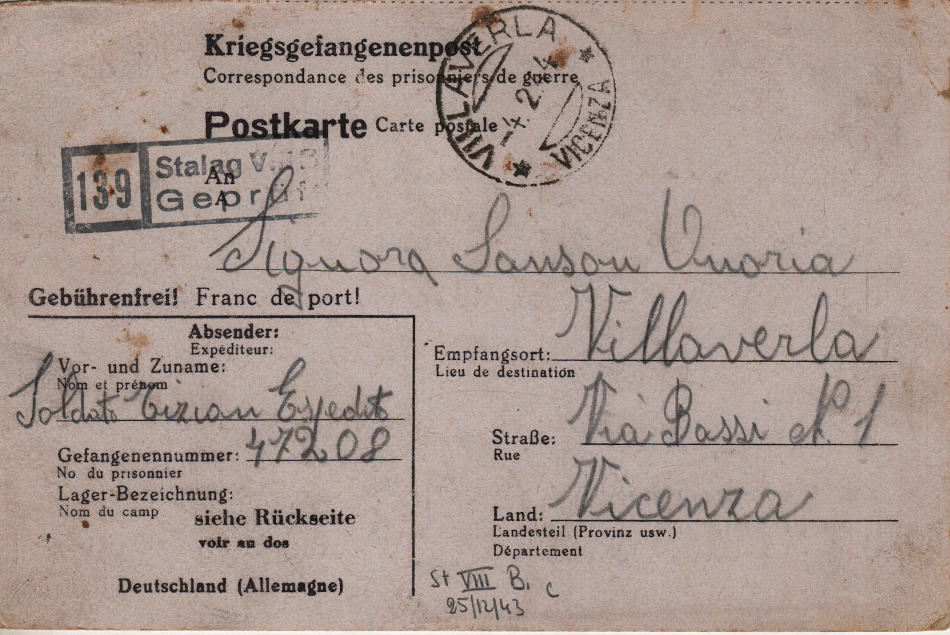 Kriegsgefangenenpost
Correspondance des prisonniers de guerre
Postkarte Carte postale
VILLAVERLA
VICENZA
139
Stalag V
Geprüf
An
A
Signora Sanson Onoria
Gebührenfrei! Franc de port!
Absender:
Expéditeur:
Vor- und Zuname:
Nom et prénom
Soldato Tizian Espedito
Gefangenennummer: 47208
No du prisonnier
Lager-Bezeichnung:
Nom du camp
siehe Rückseite
voir au dos
Deutschland (Allemagne)
Empfangsort: Villaverla
Lieu de destination
Straße: Via Bassi N. 1
Rue
Land: Vicenza
Landesteil (Provinz usw.)
Département
St VIII B. c
25/12/43